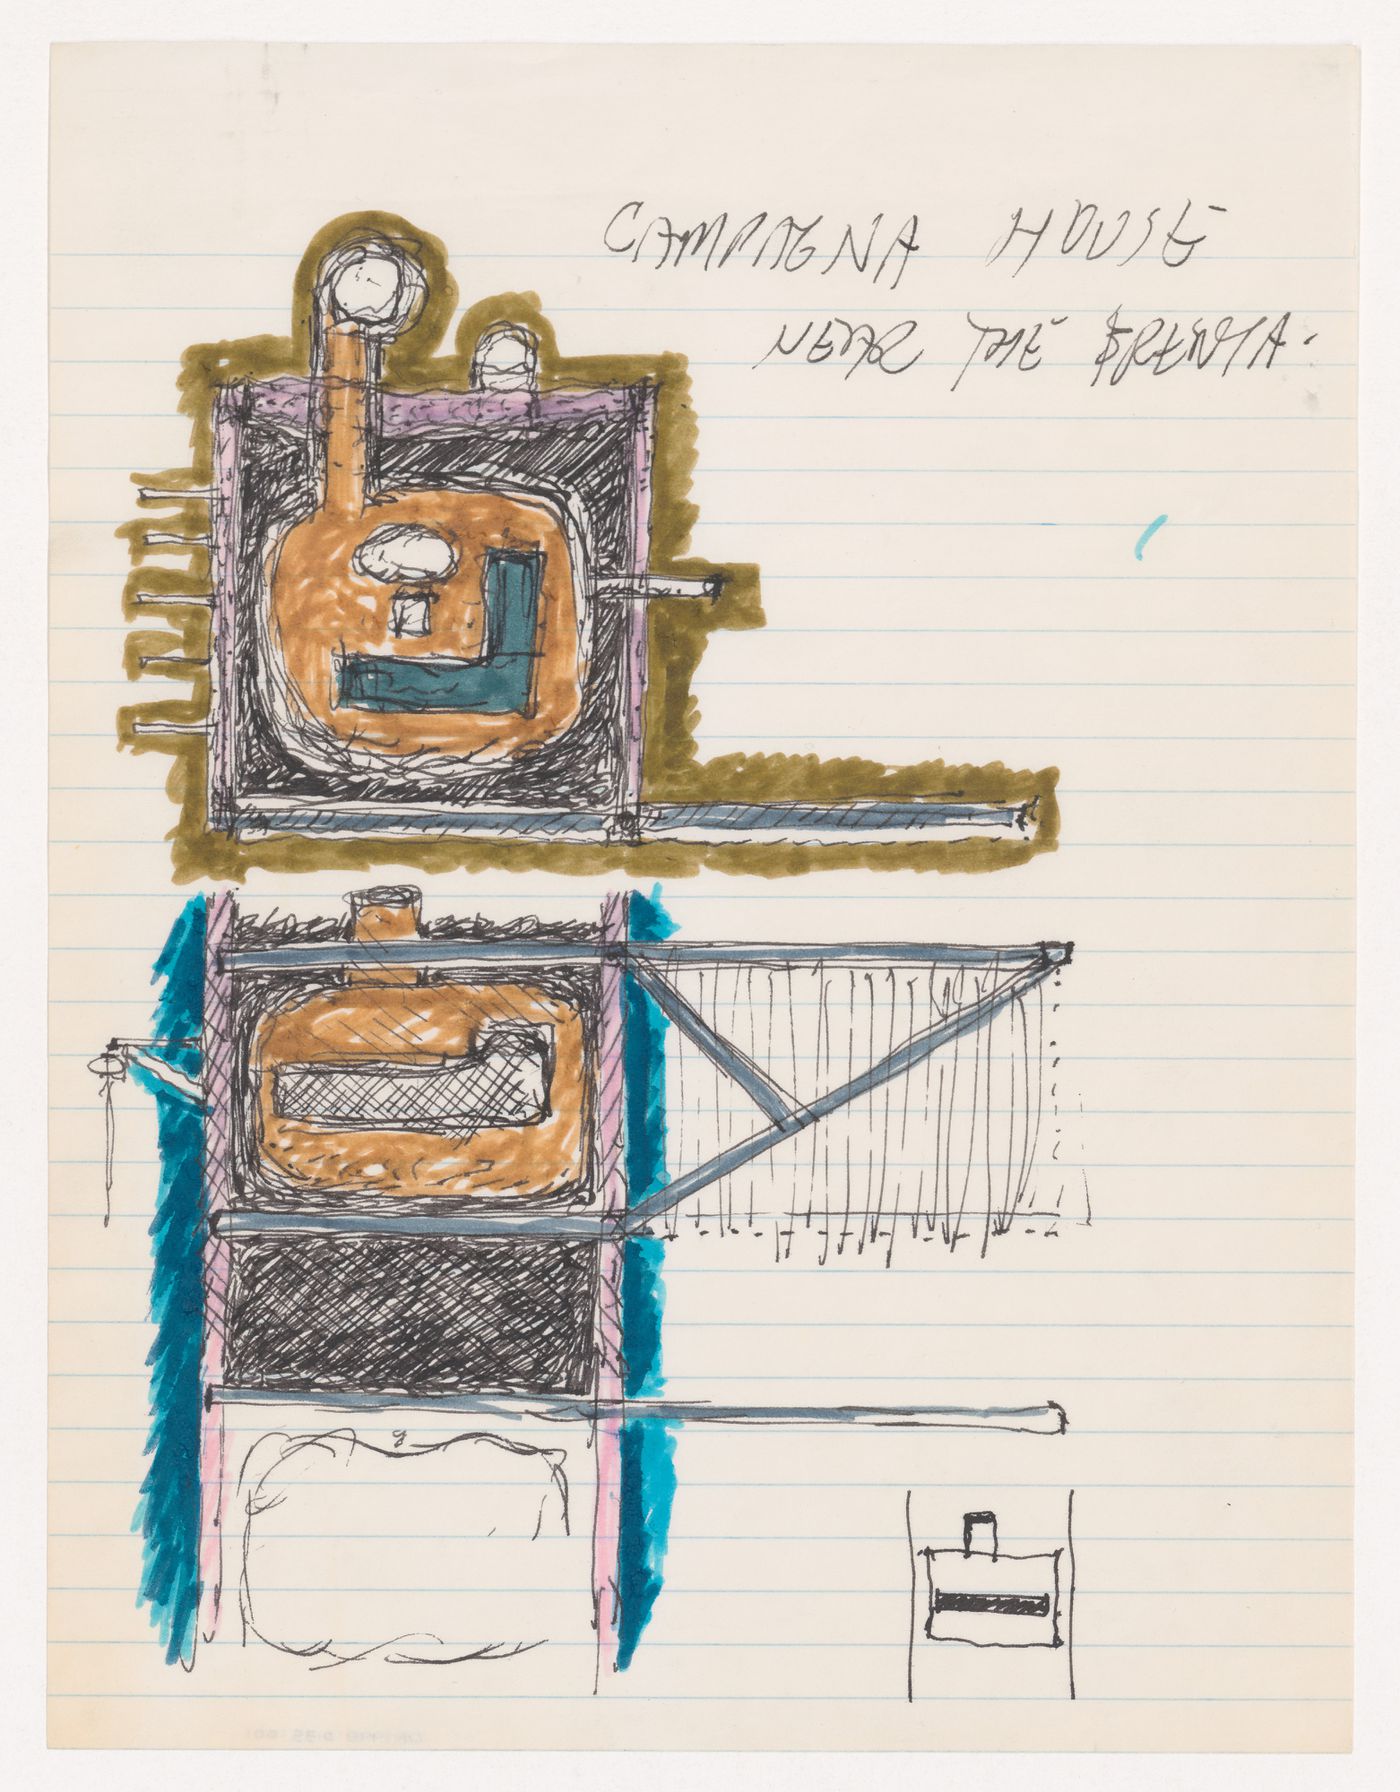 CAMPAGNA HOUSE
NEAR THE BRENTA.